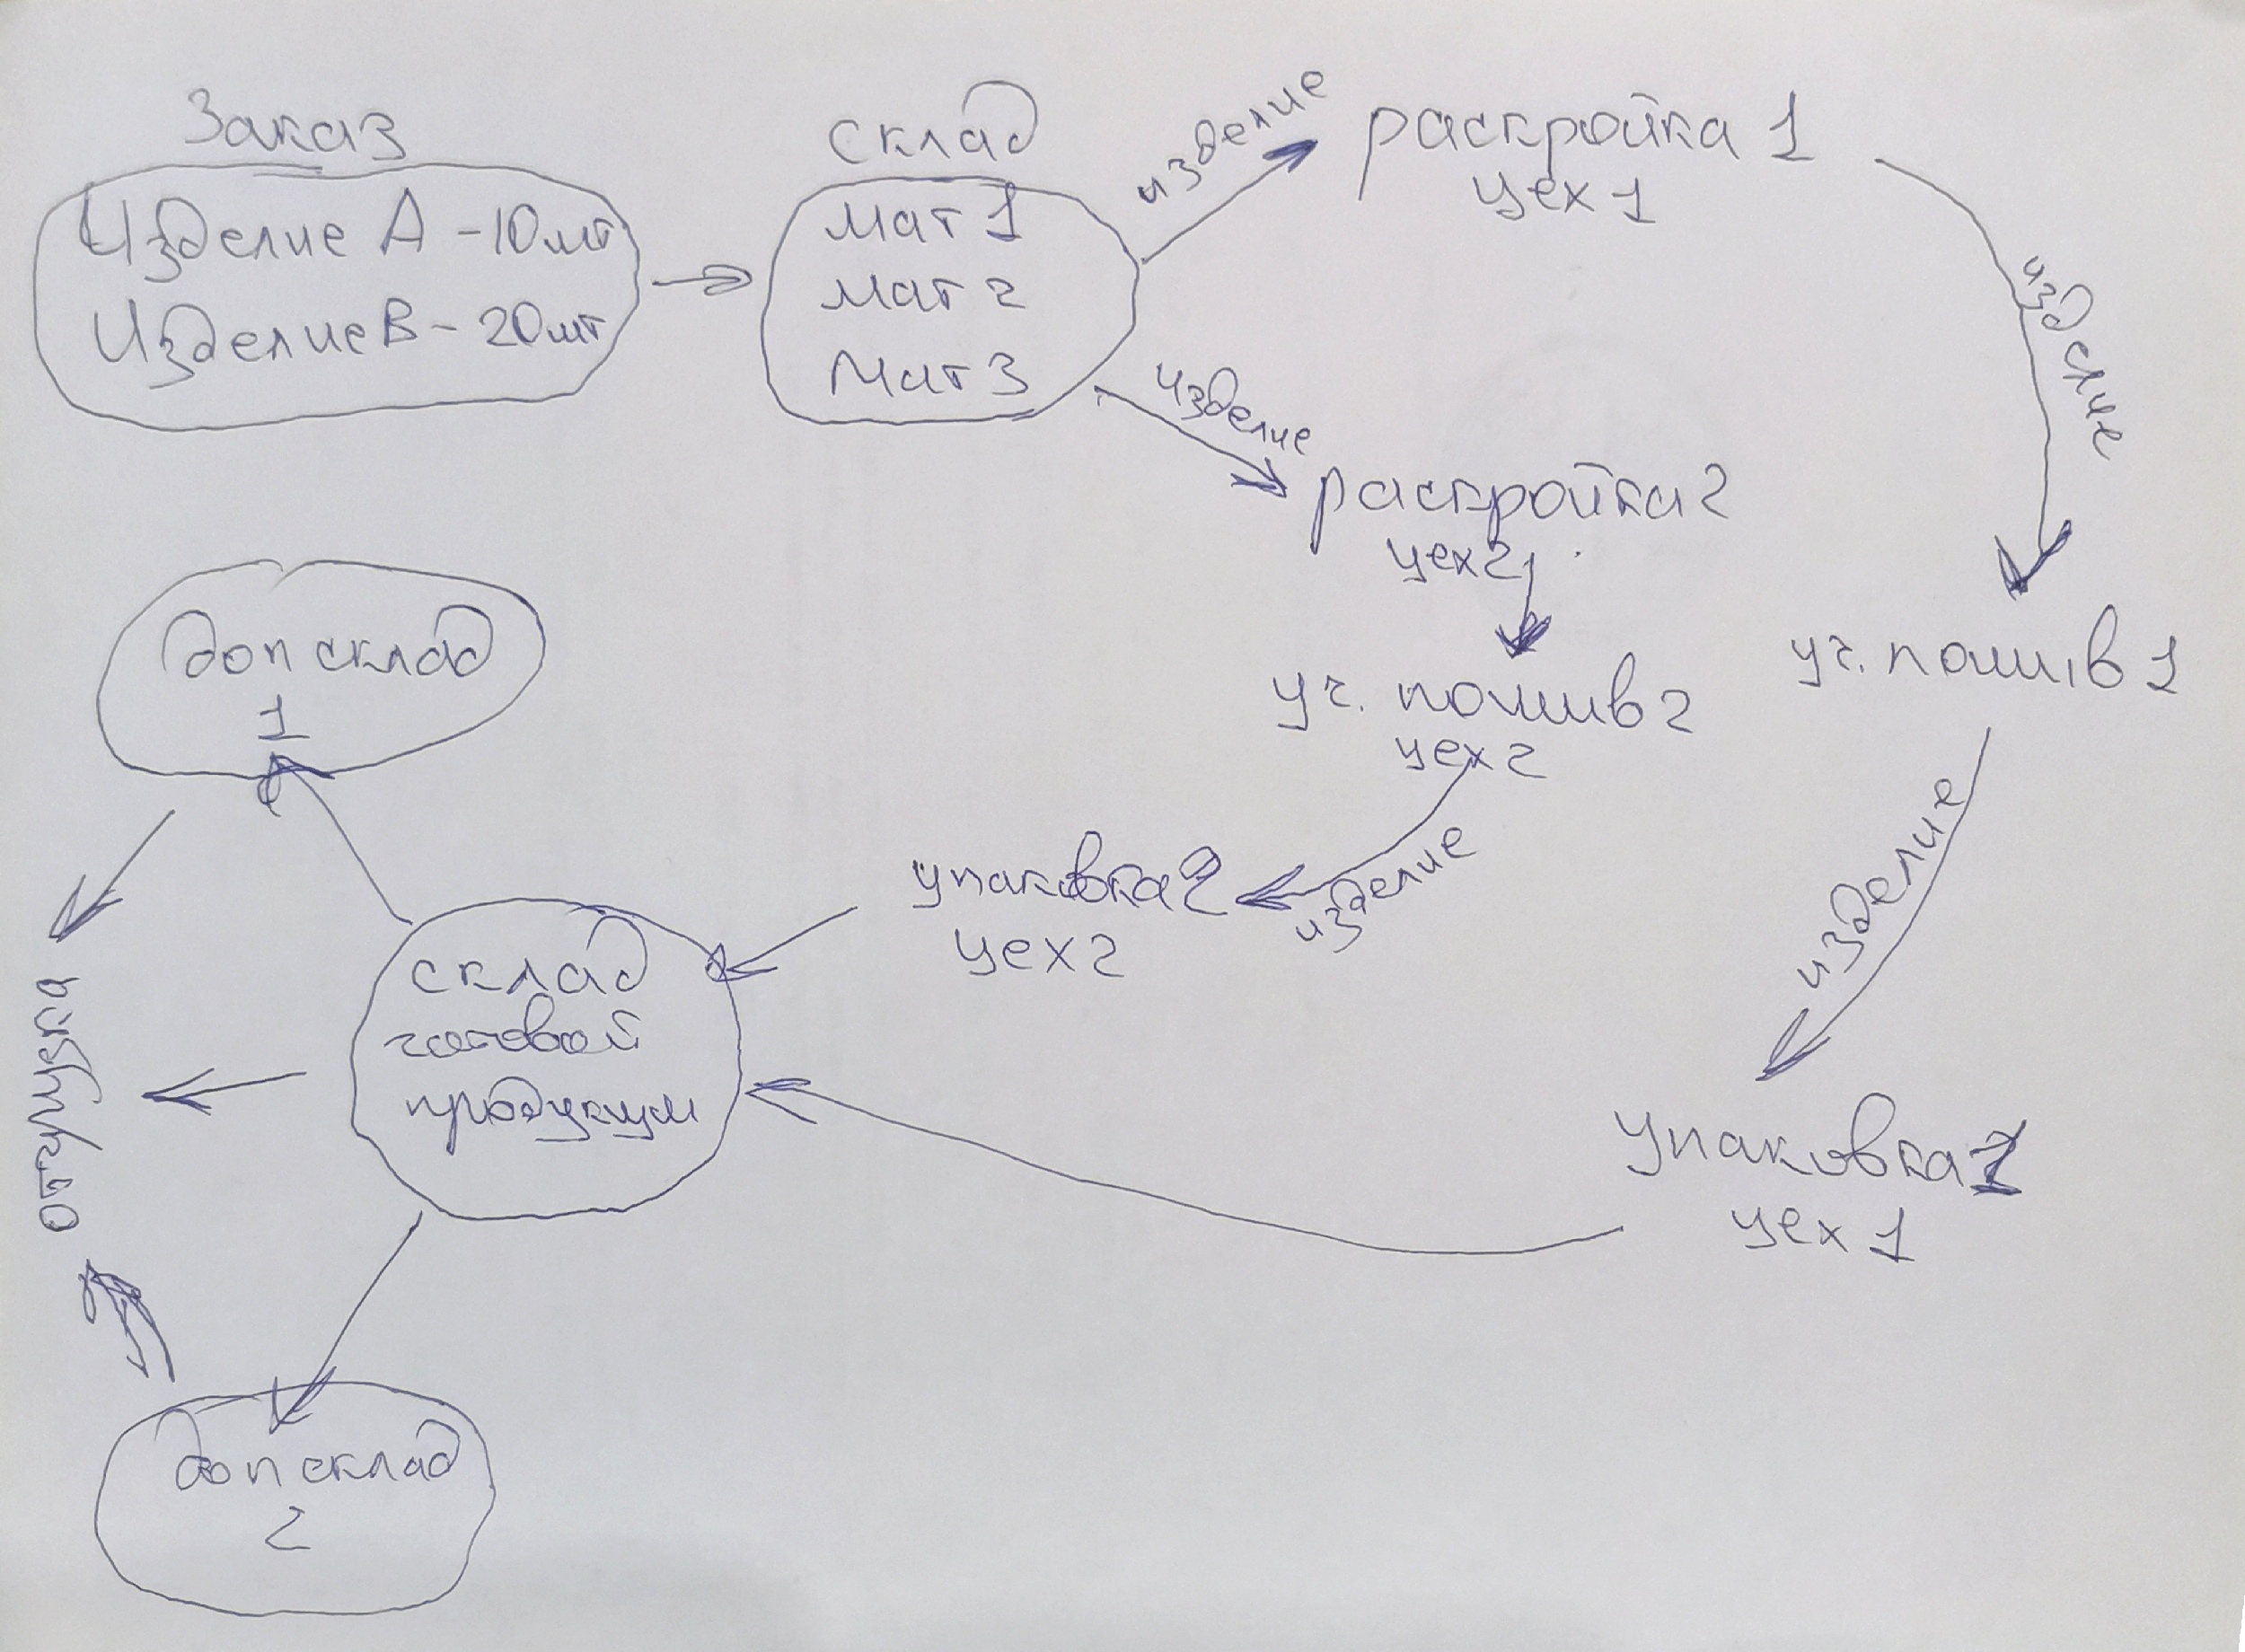 Заказ
Изделие А - 10 шт
Изделие В - 20 шт
склад
мат 1
мат 2
мат 3
изделие
раскройка 1
цех 1
изделие
изделие
раскройка 2
цех 2
уч. пошив 1
уч. пошив 2
цех 2
изделие
изделие
упаковка 2
цех 2
упаковка 1
цех 1
доп склад
1
склад
готовой
продукции
отгрузка
доп склад
2